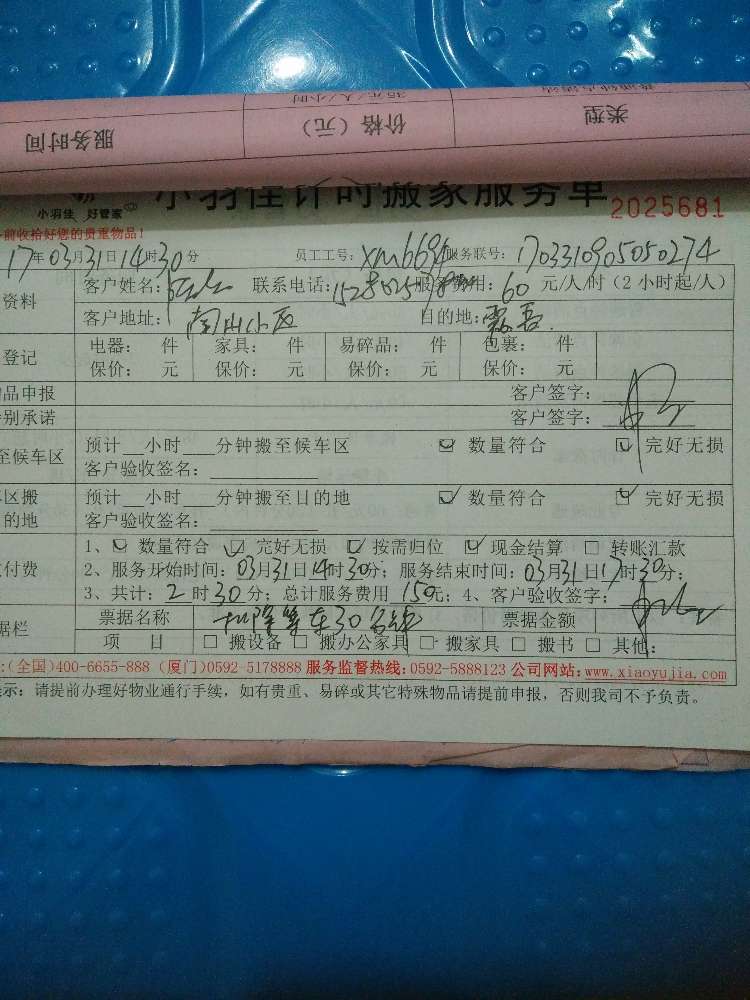 服务时间 价格（元） 类型
35元/人/小时
小羽佳计时搬家服务单 2025681
小羽佳 好管家
前收拾好您的贵重物品！
17年03月31日14时30分 员工工号：xm6694 服务联号：1703310905050274
资料 客户姓名： 联系电话： 服务费用：60元/人/时（2小时起/人）
客户地址：南山小区 目的地：
登记 电器： 件 家具： 件 易碎品： 件 包裹： 件
保价： 元 保价： 元 保价： 元 保价： 元
品申报 客户签字：
别承诺 客户签字：
至候车区 预计__小时___分钟搬至候车区 ☑ 数量符合 ☑ 完好无损
客户验收签名：
区搬 预计__小时___分钟搬至目的地 ☑ 数量符合 ☑ 完好无损
的地 客户验收签名：
1、☑ 数量符合 ☑ 完好无损 ☑ 按需归位 ☑ 现金结算 □ 转账汇款
付费 2、服务开始时间：03月31日14时30分；服务结束时间：03月31日17时30分；
3、共计：2时30分；总计服务费用150元；4、客户验收签字：
据栏 票据名称 扣除等车30分钟 票据金额
项 目 □ 搬设备 □ 搬办公家具 □ 搬家具 □ 搬书 □ 其他：
：(全国)400-6655-888 (厦门)0592-5178888 服务监督热线：0592-5888123 公司网站：www.xiaoyujia.com
示：请提前办理好物业通行手续，如有贵重、易碎或其它特殊物品请提前申报，否则我司不予负责。